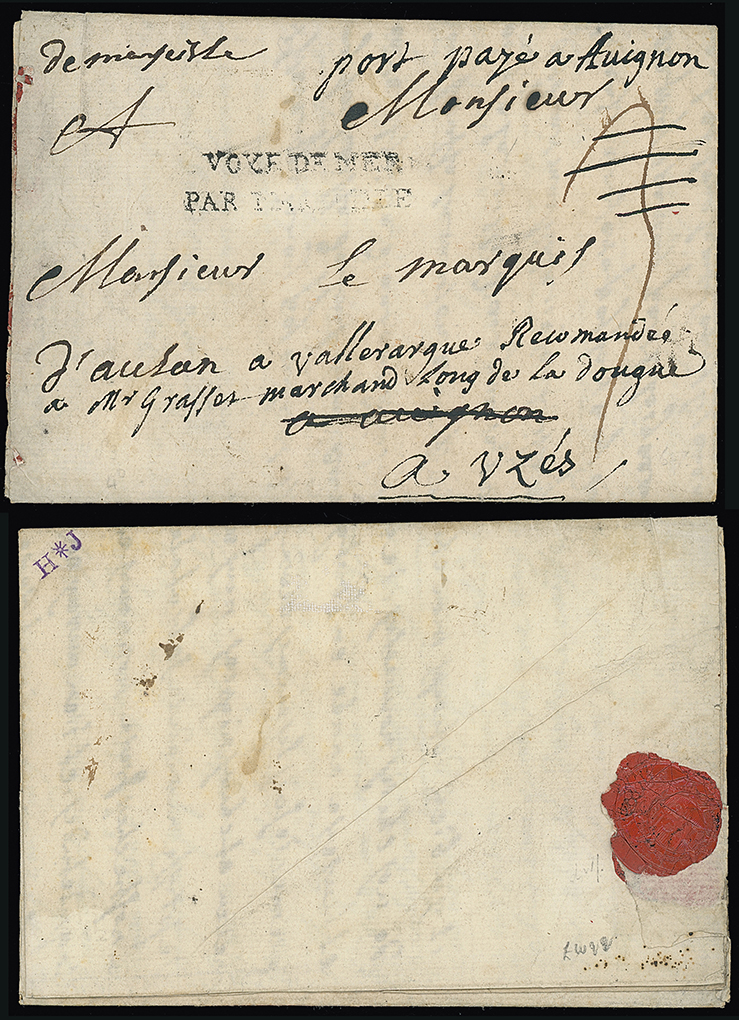 de marseille port payé a Avignon
A Monsieur
VOYE DE MER
PAR
Monsieur Le marquis
d'aulan a vallerargue Recomandée
a Mr Grasset marchand Long de la dougue
a avignon
a vzés
H*J